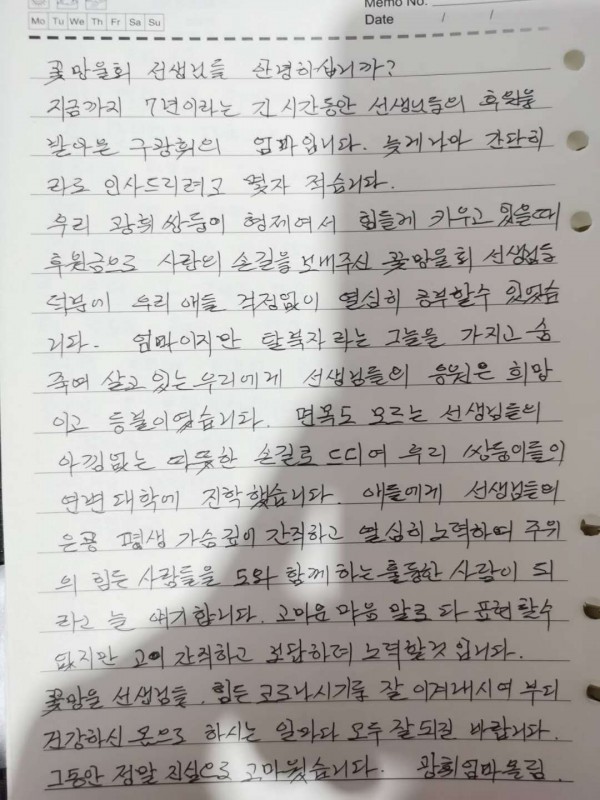 Memo No.
Mo Tu We Th Fr Sa Su
Date / /
꽃망울회 선생님들 안녕하십니까?
지금까지 7년이라는 긴 시간동안 선생님들의 후원을
받아온 구광희의 엄마입니다. 늦게나마 간단히
라로 인사드리려고 몇자 적습니다.
우리 광희 쌍둥이 형제여서 힘들게 키우고 있을때
후원금으로 사랑의 손길을 보내주신 꽃망울회 선생님들
덕분에 우리 애들 걱정없이 열심히 공부할수 있었습
니다. 엄마이지만 탈북자라는 그늘을 가지고 숨
죽여 살고 있는 우리에게 선생님들의 응원은 희망
이고 등불이였습니다. 면목도 모르는 선생님들의
아낌없는 따뜻한 손길로 드디여 우리 쌍둥이들이
연변대학에 진학했습니다. 애들에게 선생님들의
은공 평생 가슴깊이 간직하고 열심히 노력하며 주위
의 힘든 사람들을 도와 함께 하는 훌륭한 사람이 되
라고 늘 얘기합니다. 고마운 마음 말로 다 표현할수
없지만 고이 간직하고 보답하며 노력할것입니다.
꽃망울 선생님들, 힘든 코로나시기를 잘 이겨내시여 부디
건강하신 몸으로 하시는 일마다 모두 잘되길 바랍니다.
그동안 정말 진심으로 고마웠습니다. 광희엄마 올림.